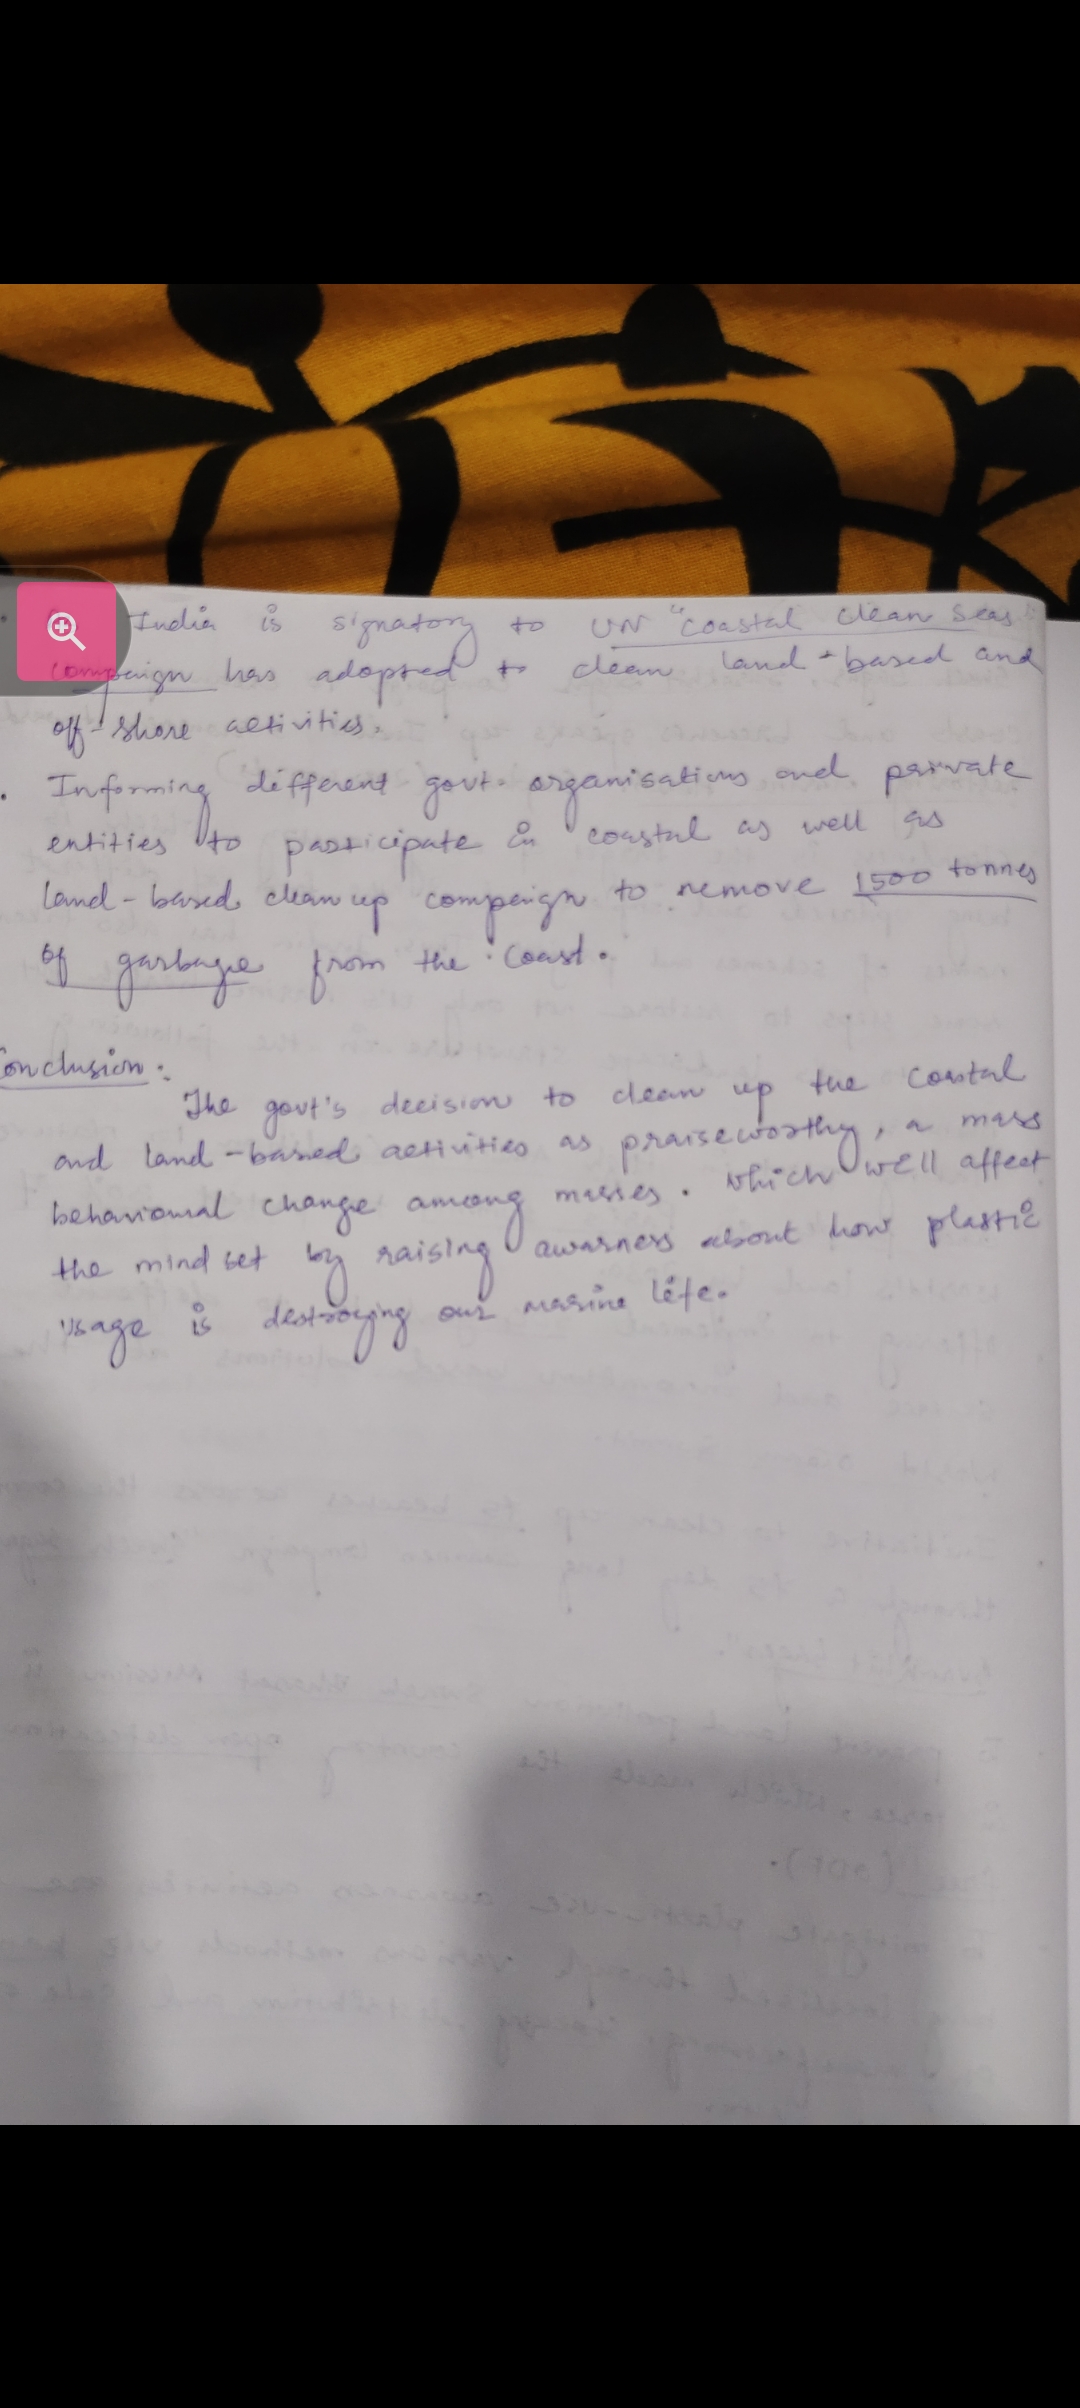 India is signatory to UN "coastal clean seas"
campaign has adopted to clean land-based and
off-shore activities.
. Informing different govt. organisations and private
entities to participate in coastal as well as
land-based clean up campaign to remove 1500 tonnes
of garbage from the coast.
Conclusion:
The govt's decision to clean up the coastal
and land-based activities as praiseworthy, a mass
behavioural change among masses. Which will affect
the mind set by raising awarness about how plastic
usage is destroying our marine life.